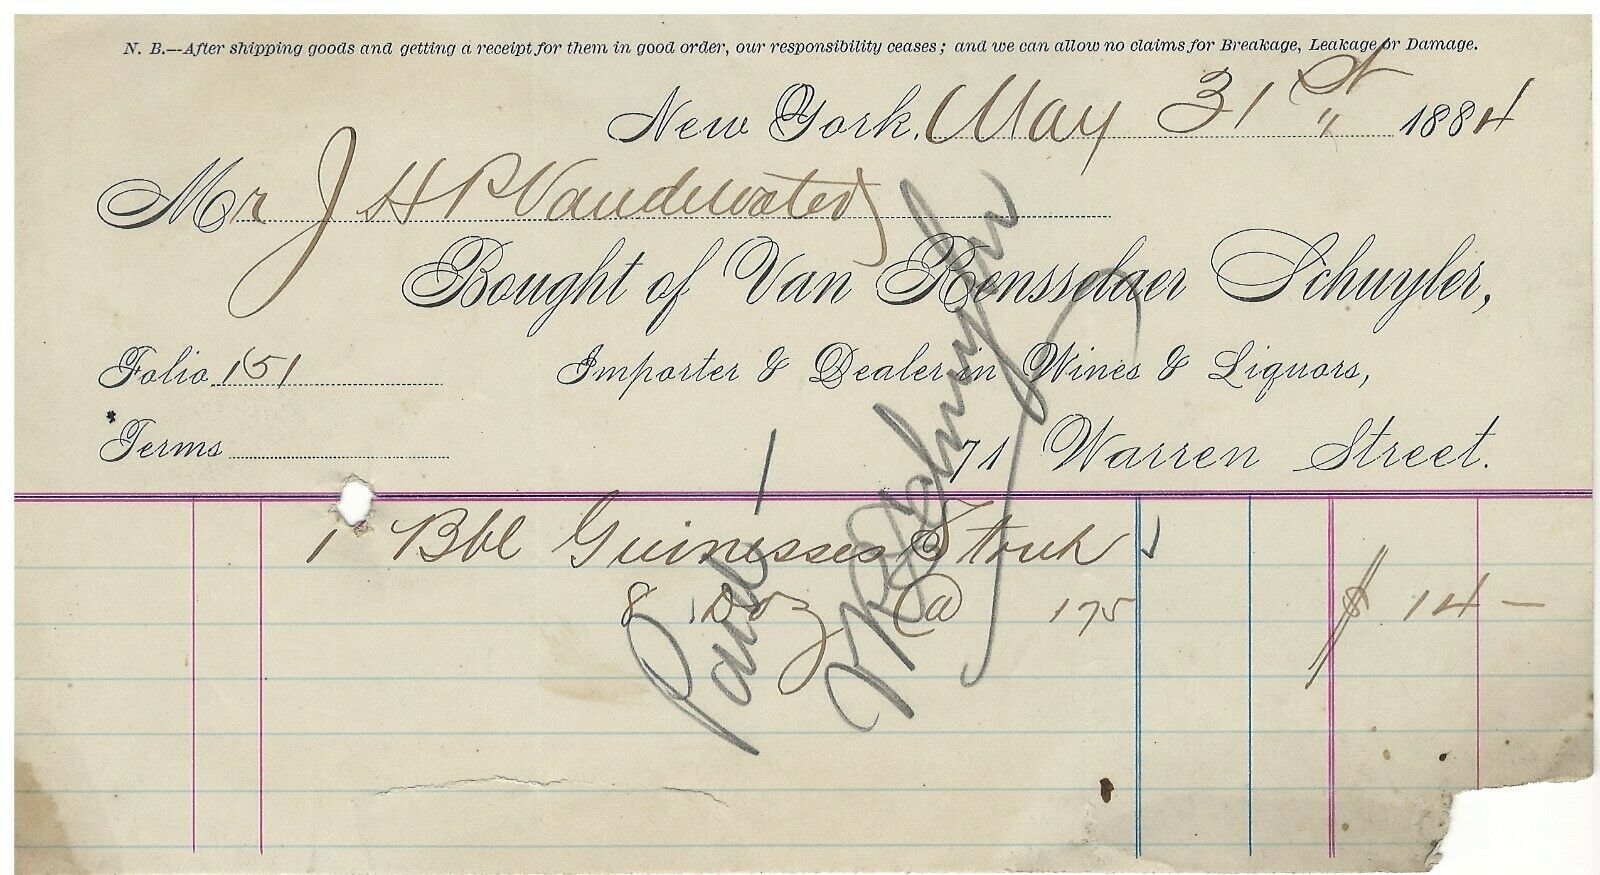 N. B.—After shipping goods and getting a receipt for them in good order, our responsibility ceases; and we can allow no claims for Breakage, Leakage or Damage.
New York, May 31st 1884
Mr J H P Vandewater
Bought of Van Rensselaer Schuyler,
Folio 151 Importer & Dealer in Wines & Liquors,
Terms 71 Warren Street.
1 Bbl Guinesses Stout
8 Doz @ 175 $ 14 —
Paid
VR Schuyler